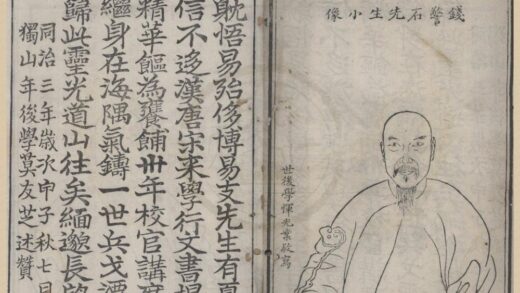 錢警石先生小像
世後學惲光業敬寫
耽悟易殆侈博易支先生有
信不迻漢唐宋来學行文書
精華饇為饔餔卅年校官講
繼身在海隅氣鑄一世兵戈
歸此靈光道山往矣緬邈長
同治三年歲次甲子秋七月
獨山年後學莫友芝述贊